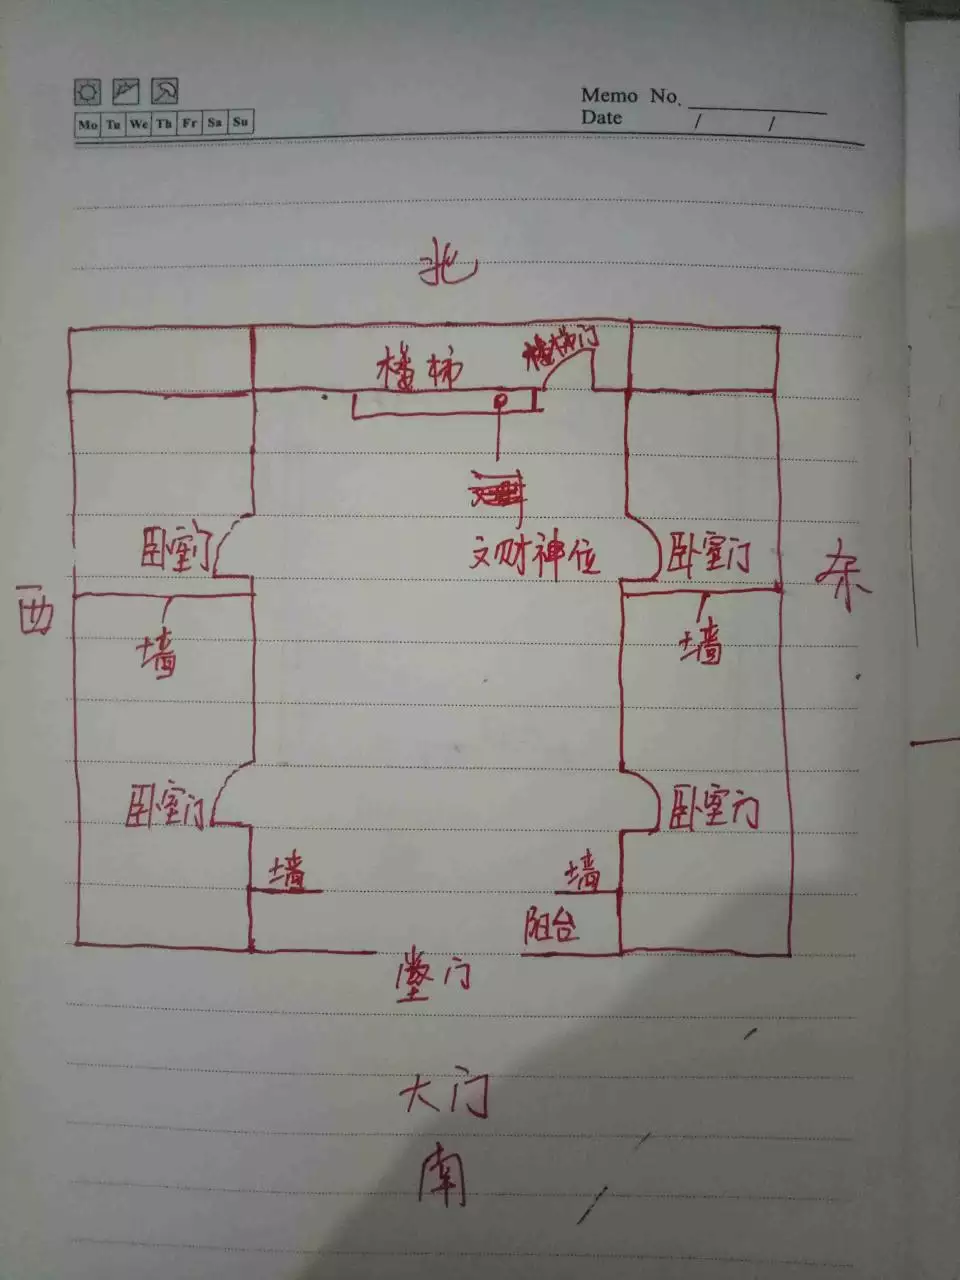 Memo No.
Date / /
Mo Tu We Th Fr Sa Su
北
楼梯 楼梯门
文财神位
卧室门 卧室门
西 东
墙 墙
卧室门 卧室门
墙 墙
阳台
堂门
大门
南